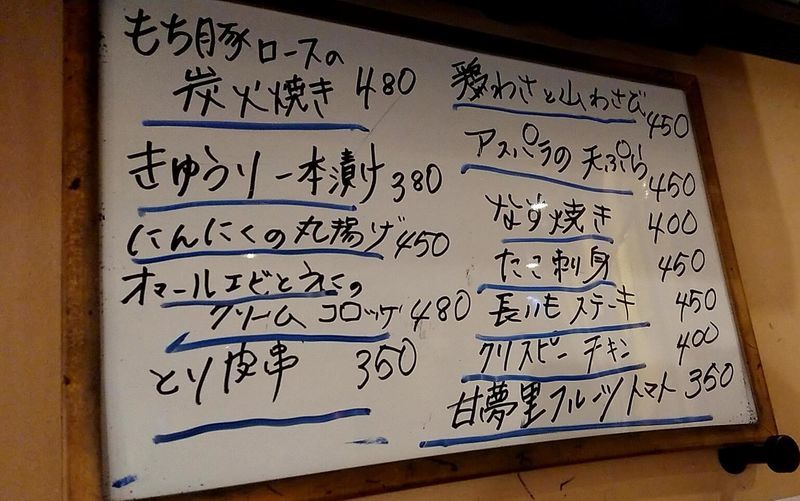 もち豚ロースの
炭火焼き 480
きゅうり一本漬け 380
にんにくの丸揚げ 450
オマールエビとうにの
クリームコロッケ 480
とり皮串 350
わさと山わさび 450
アスパラの天ぷら 450
なす焼き 400
たこ刺身 450
長いもステーキ 450
クリスピーチキン 400
甘夢里フルーツトマト 350